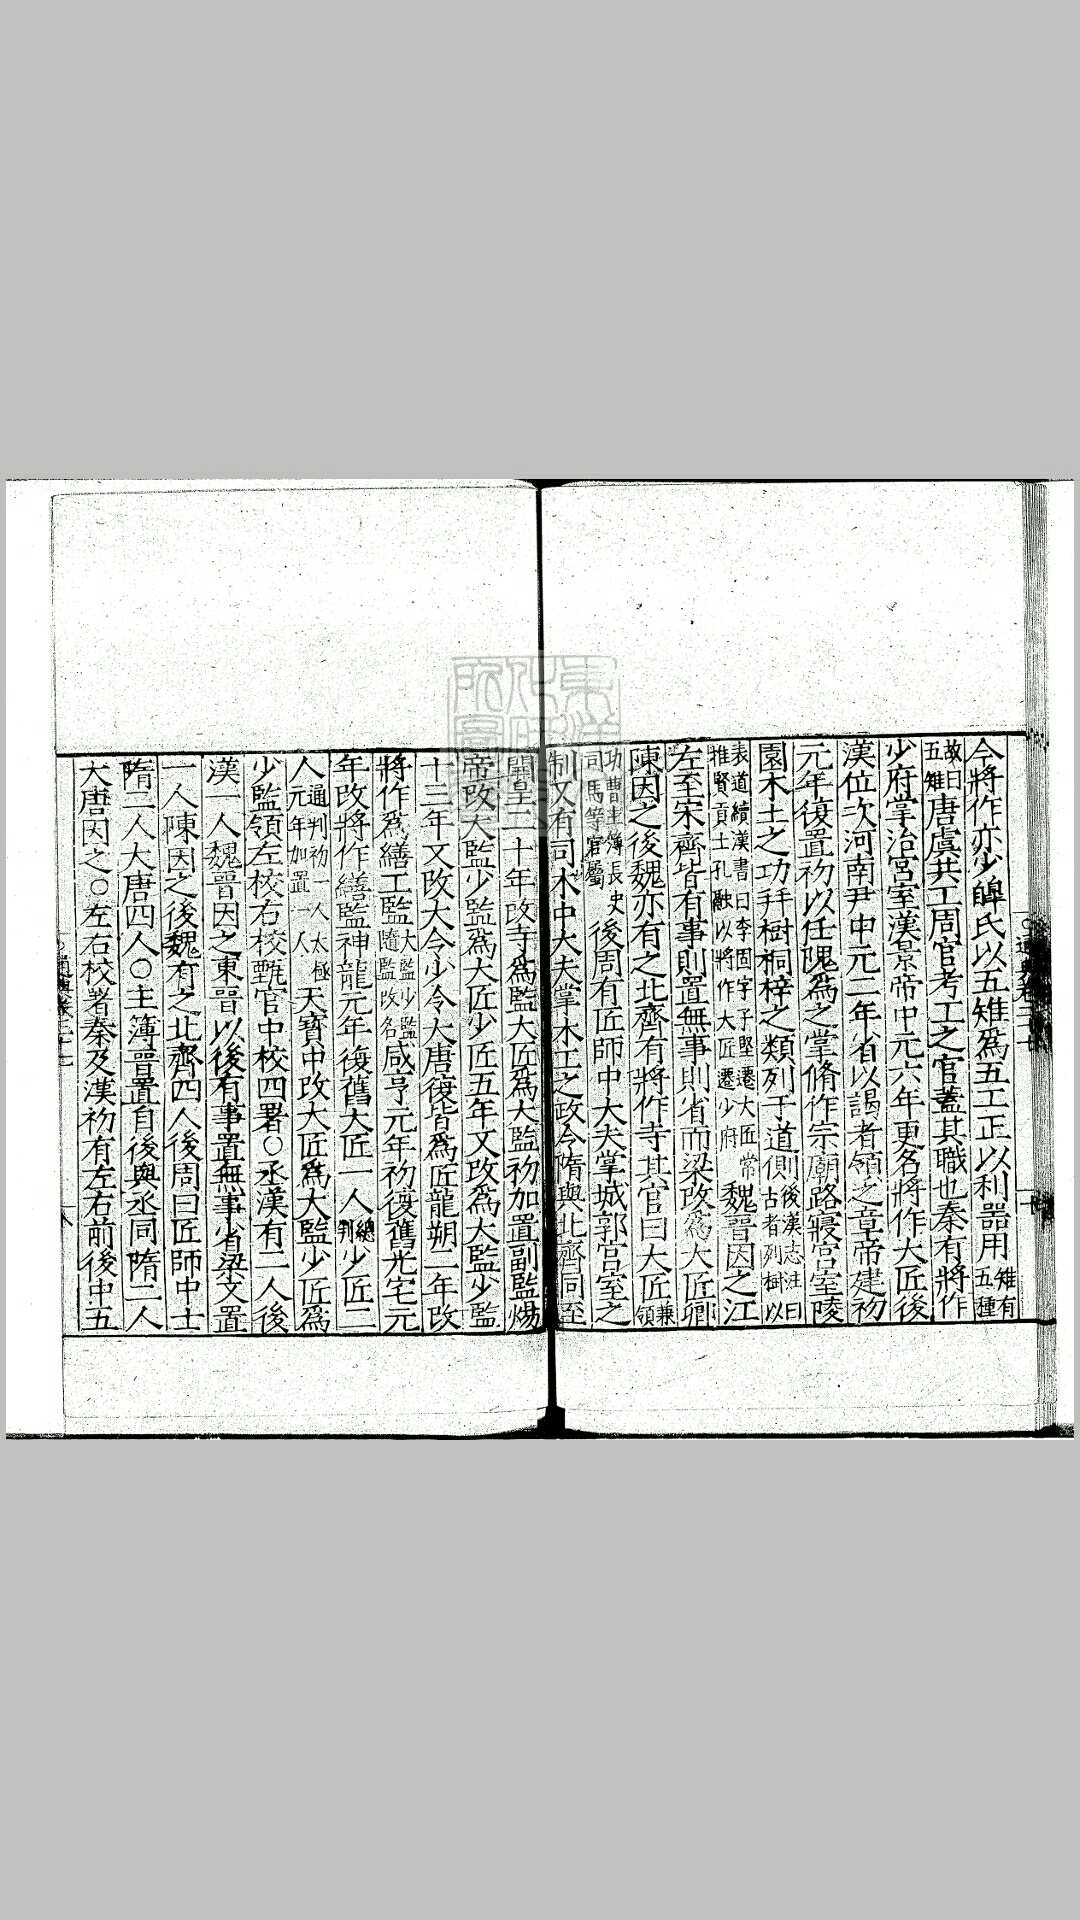 令將作亦少皥氏以五雉爲五工正以利器用雉有五種
故曰五雉唐虞共工周官考工之官蓋其職也秦有將作
少府掌治宮室漢景帝中元六年更名將作大匠後
漢位次河南尹中元二年省以謁者領之章帝建初
元年復置初以任隗爲之掌脩作宗廟路寢宮室陵
園木土之功并樹桐梓之類列于道側後漢志注曰古者列樹以
表道續漢書曰李固字子堅遷大匠常推賢貢士孔融以將作大匠遷少府魏晉因之江
左至宋齊皆有事則置無事則省而梁改爲大匠卿
陳因之後魏亦有之北齊有將作寺其官曰大匠兼領
功曹主簿長史司馬等官屬後周有匠師中大夫掌城郭宮室之
制又有司木中大夫掌木工之政令隋與北齊同至
開皇二十年改寺爲監大匠爲大監初加置副監煬
帝改大監少監爲大匠少匠五年又改爲大監少監
十三年又改大令少令大唐復皆爲匠龍朔二年改
將作爲繕工監大監少監隨監改名咸亨元年初復舊光宅元
年改將作繕監神龍元年復舊大匠一人總判少匠二
人通判初一人太極元年加置一人天寶中改大匠爲大監少匠爲
少監領左校右校甄官中校四署○丞漢有二人後
漢一人魏晉因之東晉以後有事置無事省梁又置
一人陳因之後魏有之北齊四人後周曰匠師中士
隋二人大唐四人○主簿晉置自後與丞同隋二人
大唐因之○左右校署秦及漢初有左右前後中五